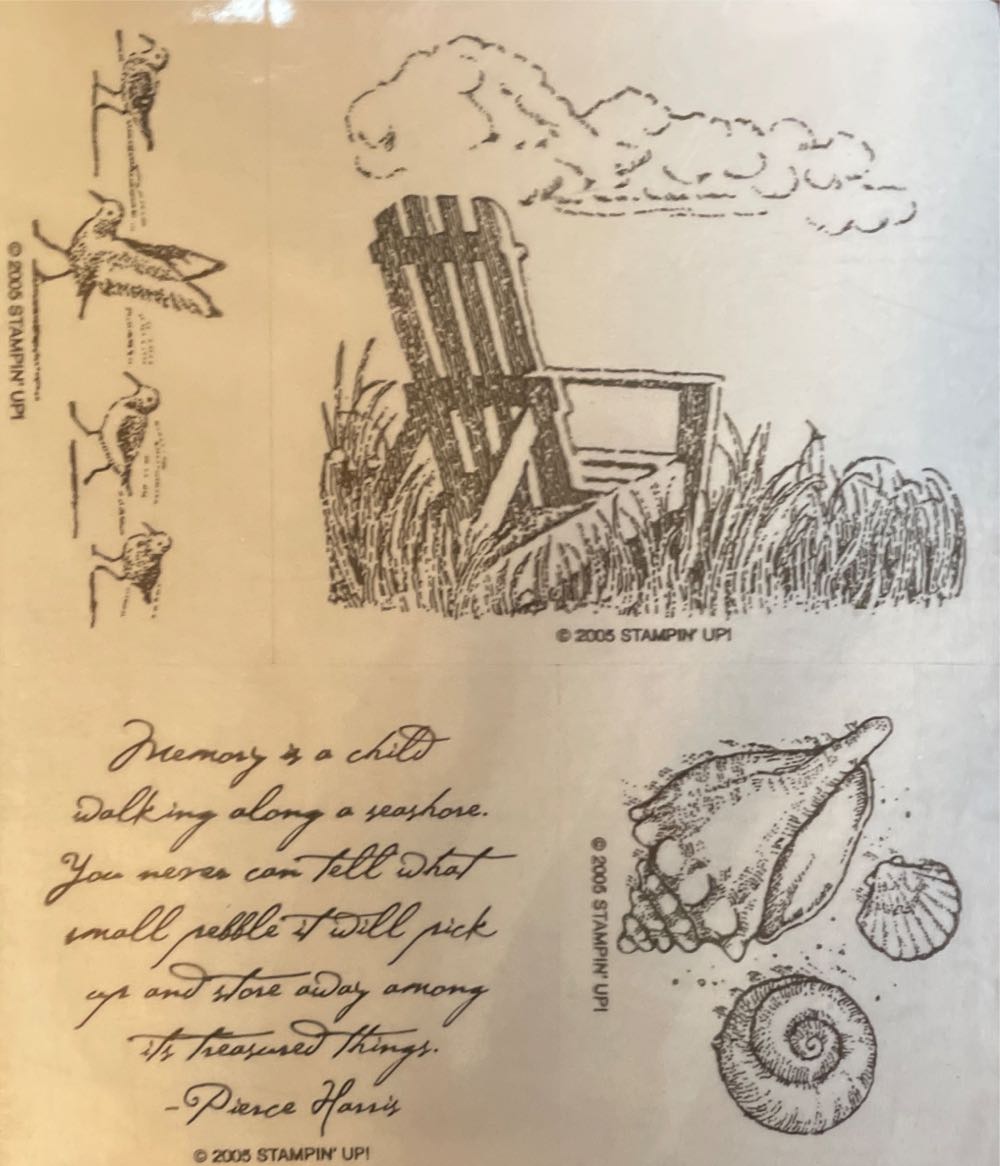 © 2005 STAMPIN' UP!
© 2005 STAMPIN' UP!
Memory is a child
walking along a seashore.
You never can tell what
small pebble it will pick
up and store away among
its treasured things.
-Pierce Harris
© 2005 STAMPIN' UP!
© 2005 STAMPIN' UP!